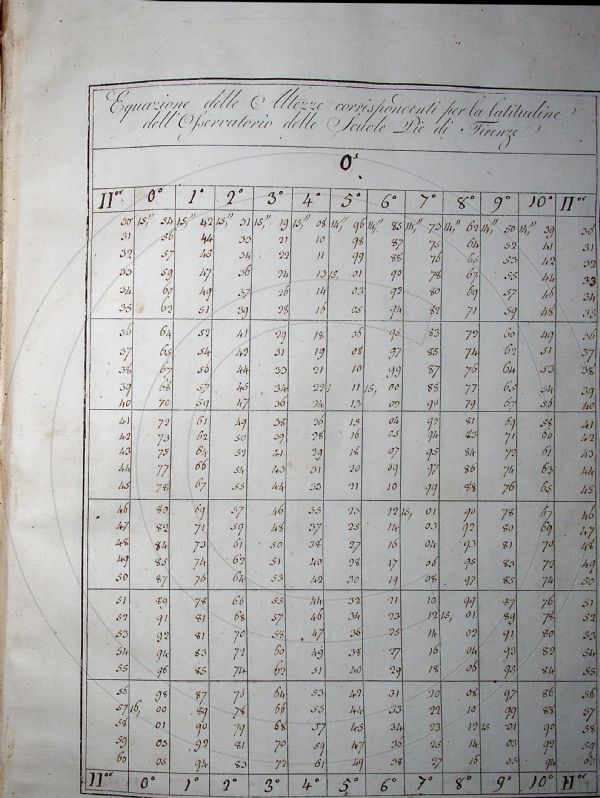 Equazione delle Altezze corrispondenti per la latitudine
dell'Osservatorio delle Scuole Pie di Firenze
0ˢ
IIᵒʳ 0° 1° 2° 3° 4° 5° 6° 7° 8° 9° 10° IIᵒʳ
30 15," 54 15," 42 15," 31 15," 19 15," 08 14," 96 14," 85 14," 73 14," 62 14," 50 14," 39 30
31 56 44 33 21 10 98 87 75 64 52 41 31
32 57 45 34 22 11 99 88 76 65 53 42 32
33 59 47 36 24 13 15, 01 90 78 67 55 44 33
34 60 49 37 26 14 03 92 80 69 57 46 34
35 62 51 39 28 16 05 94 82 71 59 48 35
36 64 52 41 29 18 06 95 83 72 60 49 36
37 65 54 42 31 19 08 97 85 74 62 51 37
38 67 56 44 33 21 10 99 87 76 64 53 38
39 68 57 45 34 22 11 15, 00 88 77 65 54 39
40 70 59 47 36 24 13 02 90 79 67 56 40
41 72 61 49 38 26 15 04 92 81 69 58 41
42 73 62 50 39 28 16 05 94 83 71 60 42
43 75 64 52 41 29 18 07 95 84 72 61 43
44 77 66 54 43 31 20 09 97 86 74 63 44
45 78 67 55 44 33 21 10 99 88 76 65 45
46 80 69 57 46 35 23 12 15, 01 90 78 67 46
47 82 71 59 48 37 25 14 03 92 80 69 47
48 84 73 61 50 38 27 16 04 93 81 70 48
49 85 74 62 51 40 28 17 06 95 83 72 49
50 87 76 64 53 42 30 19 08 97 85 74 50
51 89 78 66 55 44 32 21 10 99 87 76 51
52 91 81 68 57 46 34 23 12 15, 01 89 78 52
53 92 81 70 58 47 36 25 14 02 91 80 53
54 94 83 72 60 49 38 27 16 04 93 82 54
55 96 85 74 62 51 40 29 18 06 95 84 55
56 98 87 76 64 53 42 31 20 08 97 86 56
57 16, 00 89 78 66 55 44 33 22 10 99 88 57
58 01 90 79 68 57 45 34 23 12 15 01 90 58
59 03 92 81 70 59 47 36 25 14 03 92 59
60 05 94 83 72 61 49 38 27 16 05 94 60
IIᵒʳ 0° 1° 2° 3° 4° 5° 6° 7° 8° 9° 10° IIᵒʳ